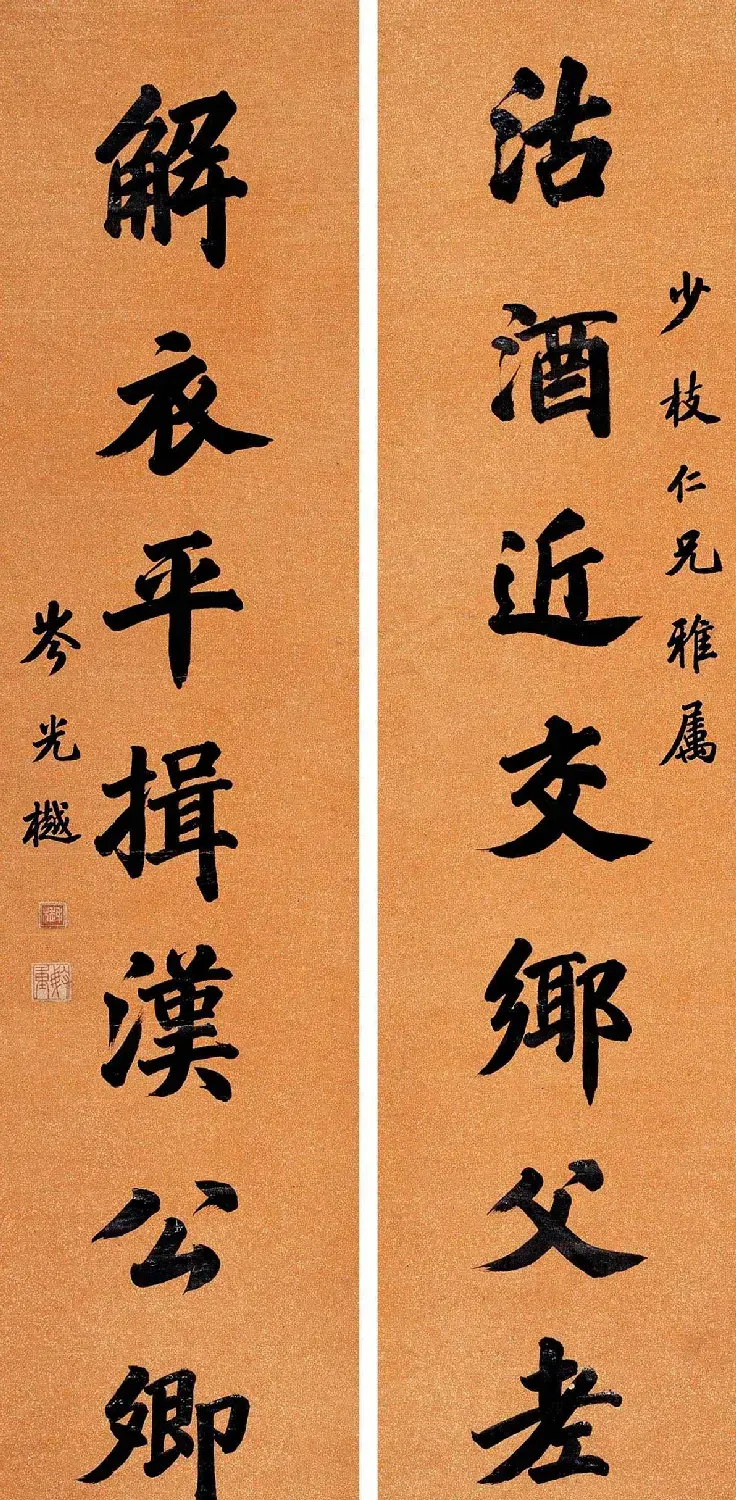 少枝仁兄雅属
沽酒近交鄉父老
解衣平揖漢公卿
岑光樾